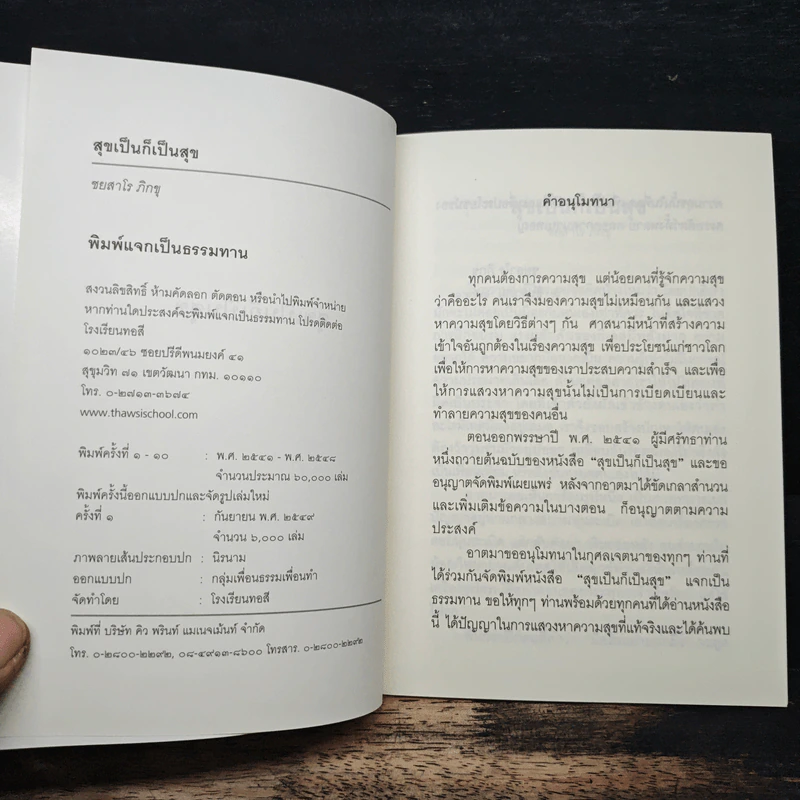 สุขเป็นก็เป็นสุข
ชยสาโร ภิกขุ
พิมพ์แจกเป็นธรรมทาน
สงวนลิขสิทธิ์ ห้ามคัดลอก ตัดตอน หรือนำไปพิมพ์จำหน่าย
หากท่านใดประสงค์จะพิมพ์แจกเป็นธรรมทาน โปรดติดต่อ
โรงเรียนทอสี
๑๐๒๓/๔๖ ซอยปรีดีพนมยงค์ ๔๑
สุขุมวิท ๗๑ เขตวัฒนา กทม. ๑๐๑๑๐
โทร. ๐-๒๗๑๓-๓๖๗๔
www.thawsischool.com
พิมพ์ครั้งที่ ๑ - ๑๐ : พ.ศ. ๒๕๔๑ - พ.ศ. ๒๕๔๘
จำนวนประมาณ ๖๐,๐๐๐ เล่ม
พิมพ์ครั้งนี้ออกแบบปกและจัดรูปเล่มใหม่
ครั้งที่ ๑ : กันยายน พ.ศ. ๒๕๔๙
จำนวน ๖,๐๐๐ เล่ม
ภาพลายเส้นประกอบปก : นิรนาม
ออกแบบปก : กลุ่มเพื่อนธรรมเพื่อนทำ
จัดทำโดย : โรงเรียนทอสี
พิมพ์ที่ บริษัท คิว พรินท์ แมเนจเม้นท์ จำกัด
โทร. ๐-๒๘๐๐-๒๒๙๒, ๐๘-๔๙๑๓-๘๖๐๐ โทรสาร. ๐-๒๘๐๐-๒๒๙๒
คำอนุโมทนา
ทุกคนต้องการความสุข แต่น้อยคนที่รู้จักความสุข
ว่าคืออะไร คนเราจึงมองความสุขไม่เหมือนกัน และแสวง
หาความสุขโดยวิธีต่างๆ กัน ศาสนามีหน้าที่สร้างความ
เข้าใจอันถูกต้องในเรื่องความสุข เพื่อประโยชน์แก่ชาวโลก
เพื่อให้การหาความสุขของเราประสบความสำเร็จ และเพื่อ
ให้การแสวงหาความสุขนั้นไม่เป็นการเบียดเบียนและ
ทำลายความสุขของคนอื่น
ตอนออกพรรษาปี พ.ศ. ๒๕๔๑ ผู้มีศรัทธาท่าน
หนึ่งถวายต้นฉบับของหนังสือ “สุขเป็นก็เป็นสุข” และขอ
อนุญาตจัดพิมพ์เผยแพร่ หลังจากอาตมาได้ขัดเกลาสำนวน
และเพิ่มเติมข้อความในบางตอน ก็อนุญาตตามความ
ประสงค์
อาตมาขออนุโมทนาในกุศลเจตนาของทุกๆ ท่านที่
ได้ร่วมกันจัดพิมพ์หนังสือ “สุขเป็นก็เป็นสุข” แจกเป็น
ธรรมทาน ขอให้ทุกๆ ท่านพร้อมด้วยทุกคนที่ได้อ่านหนังสือ
นี้ ได้ปัญญาในการแสวงหาความสุขที่แท้จริงและได้ค้นพบ